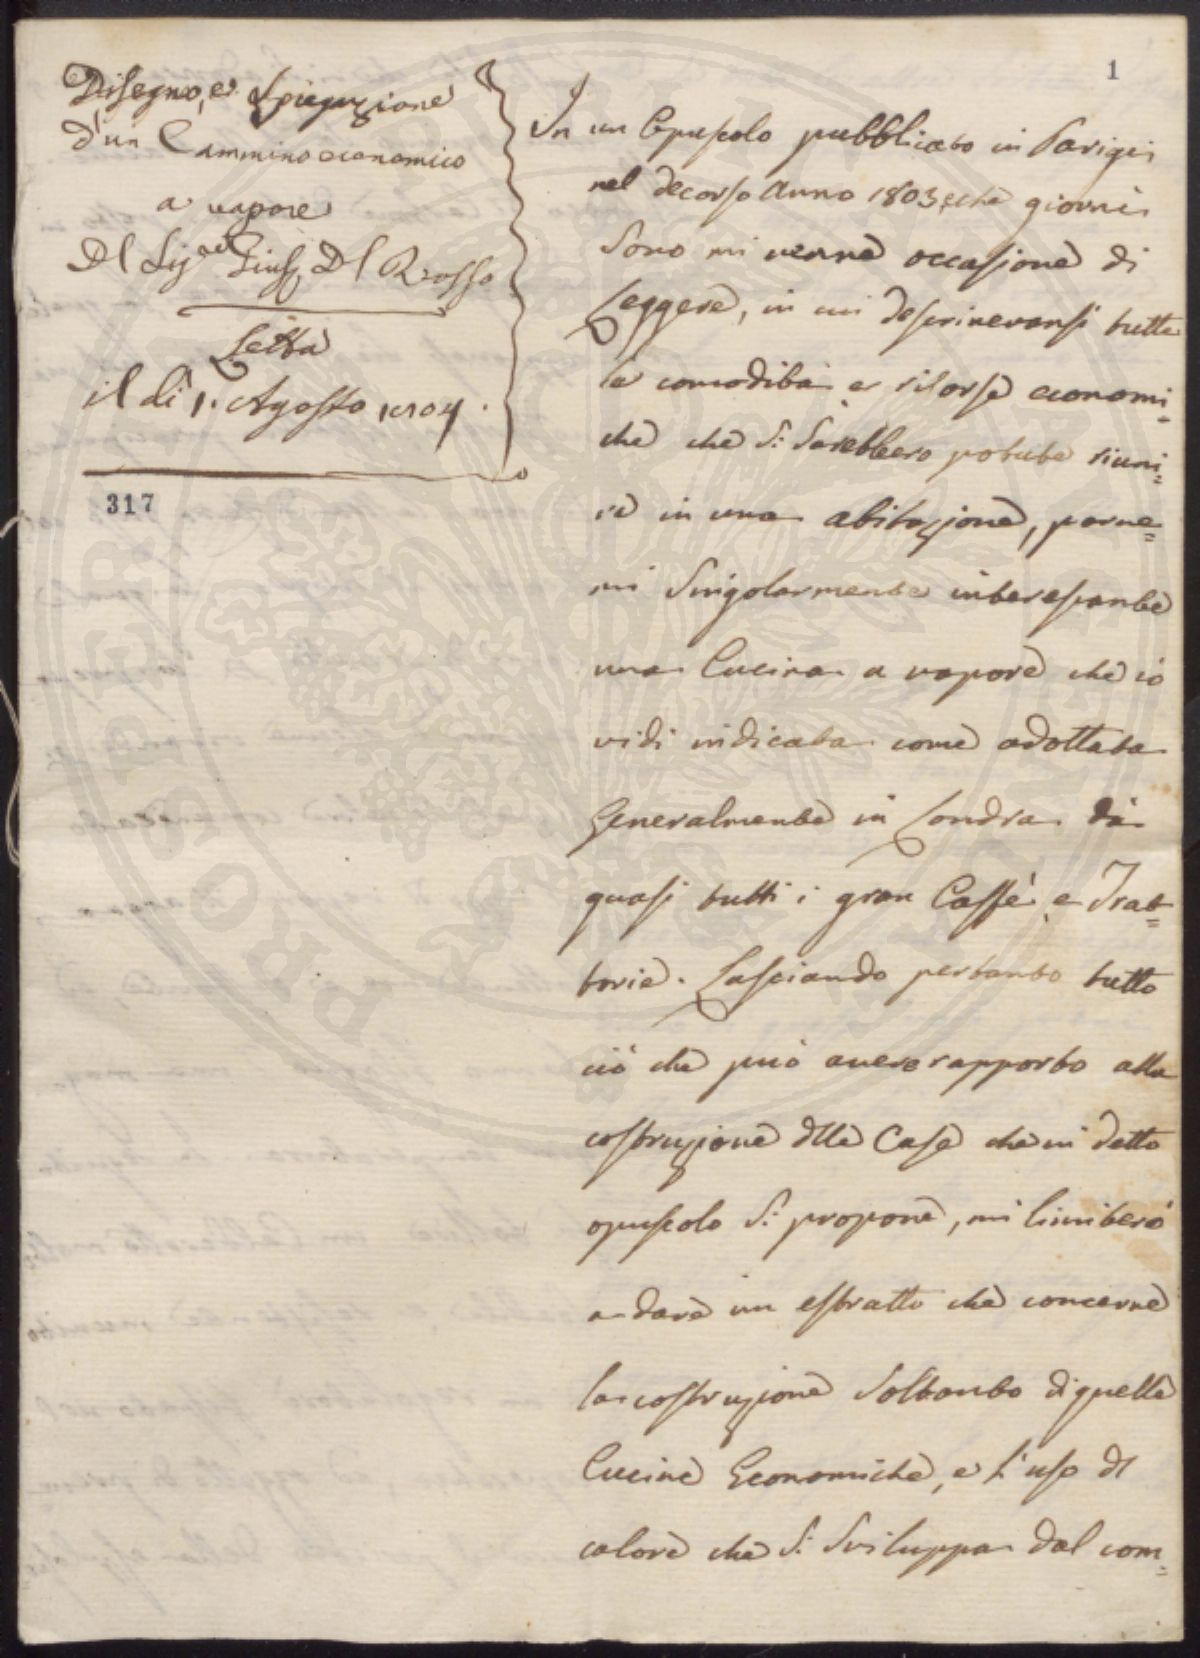 1
Disegno, e Spiegazione
d'un Cammino economico
a vapore
Del Sig.re Gius. Del Rosso
Letta
il dì 1. Agosto 1804.
317
In un Opuscolo pubblicato in Parigi
nel decorso Anno 1803, che giorni
sono mi venne occasione di
Leggere, in cui descrivevansi tutte
le comodità e risorse economi=
che che si sarebbero potute riuni=
re in una abitazione, parve=
mi singolarmente interessante
una Cucina a vapore che io
vidi indicata come adottata
Generalmente in Londra da
quasi tutti i gran Caffè e Trat=
torie. Lasciando pertanto tutto
ciò che può avere rapporto alla
costruzione dlle Case che in detto
opuscolo si propone, mi limiterò
a dare un estratto che concerne
la costruzione soltanto di quelle
Cucine Economiche, e l'uso dl
calore che si sviluppa dal com=
PROSPERITATI PUBLICAE AUGENDAE